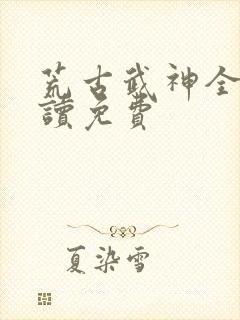 荒古武神全
讀免費
夏染雪